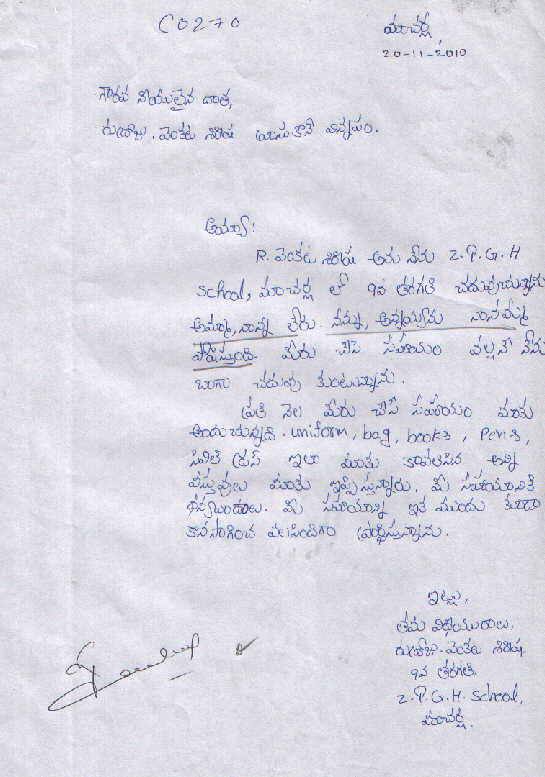 C0270
మాచర్ల
20-11-2010
గౌరవ నీయులైన దాత,
గుబ్బాజు. వెంకట శిరీష వ్రాసుకొనే విన్నపం.
అయ్యా!
R. వెంకట శిరీష అను నేను Z.P.G.H
School, మాచర్ల లో 9వ తరగతి చదువుచున్నాను
అమ్మా, నాన్న లేరు. నన్ను, అన్నయ్యను నాయనమ్మ
పోషిస్తుంది. మీరు చేసే సహాయం వల్లనే నేను
బాగా చదువు కుంటున్నాను.
ప్రతి నెల మీరు చేసే సహాయం మాకు
అందుచున్నది. uniform, bag, books, Pens,
సివిల్ డ్రస్ ఇలా మాకు కావలసిన అన్ని
వస్తువులు మాకు ఇప్పిస్తున్నారు. మీ సహాయానికి
కృతజ్ఞతలు. మీ సహాయాన్ని ఇక ముందు కూడా
కొనసాగించ వలసిందిగా ప్రార్థిస్తున్నాను.
ఇట్లు,
తమ విధేయురాలు,
వెంకట శిరీష
9వ తరగతి
Z.P.G.H School,
మాచర్ల.